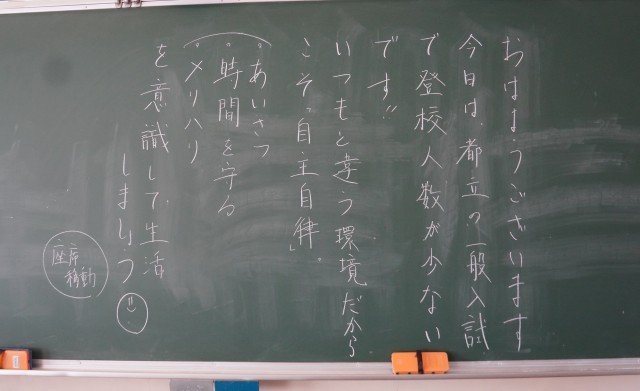 おはようございます
今日は、都立の一般入試
で登校人数が少ない
です!!
いつもと違う環境だから
こそ「自主自律」。
・あいさつ
・時間を守る
・メリハリ
を意識して、生活
しましょう
座席
移動